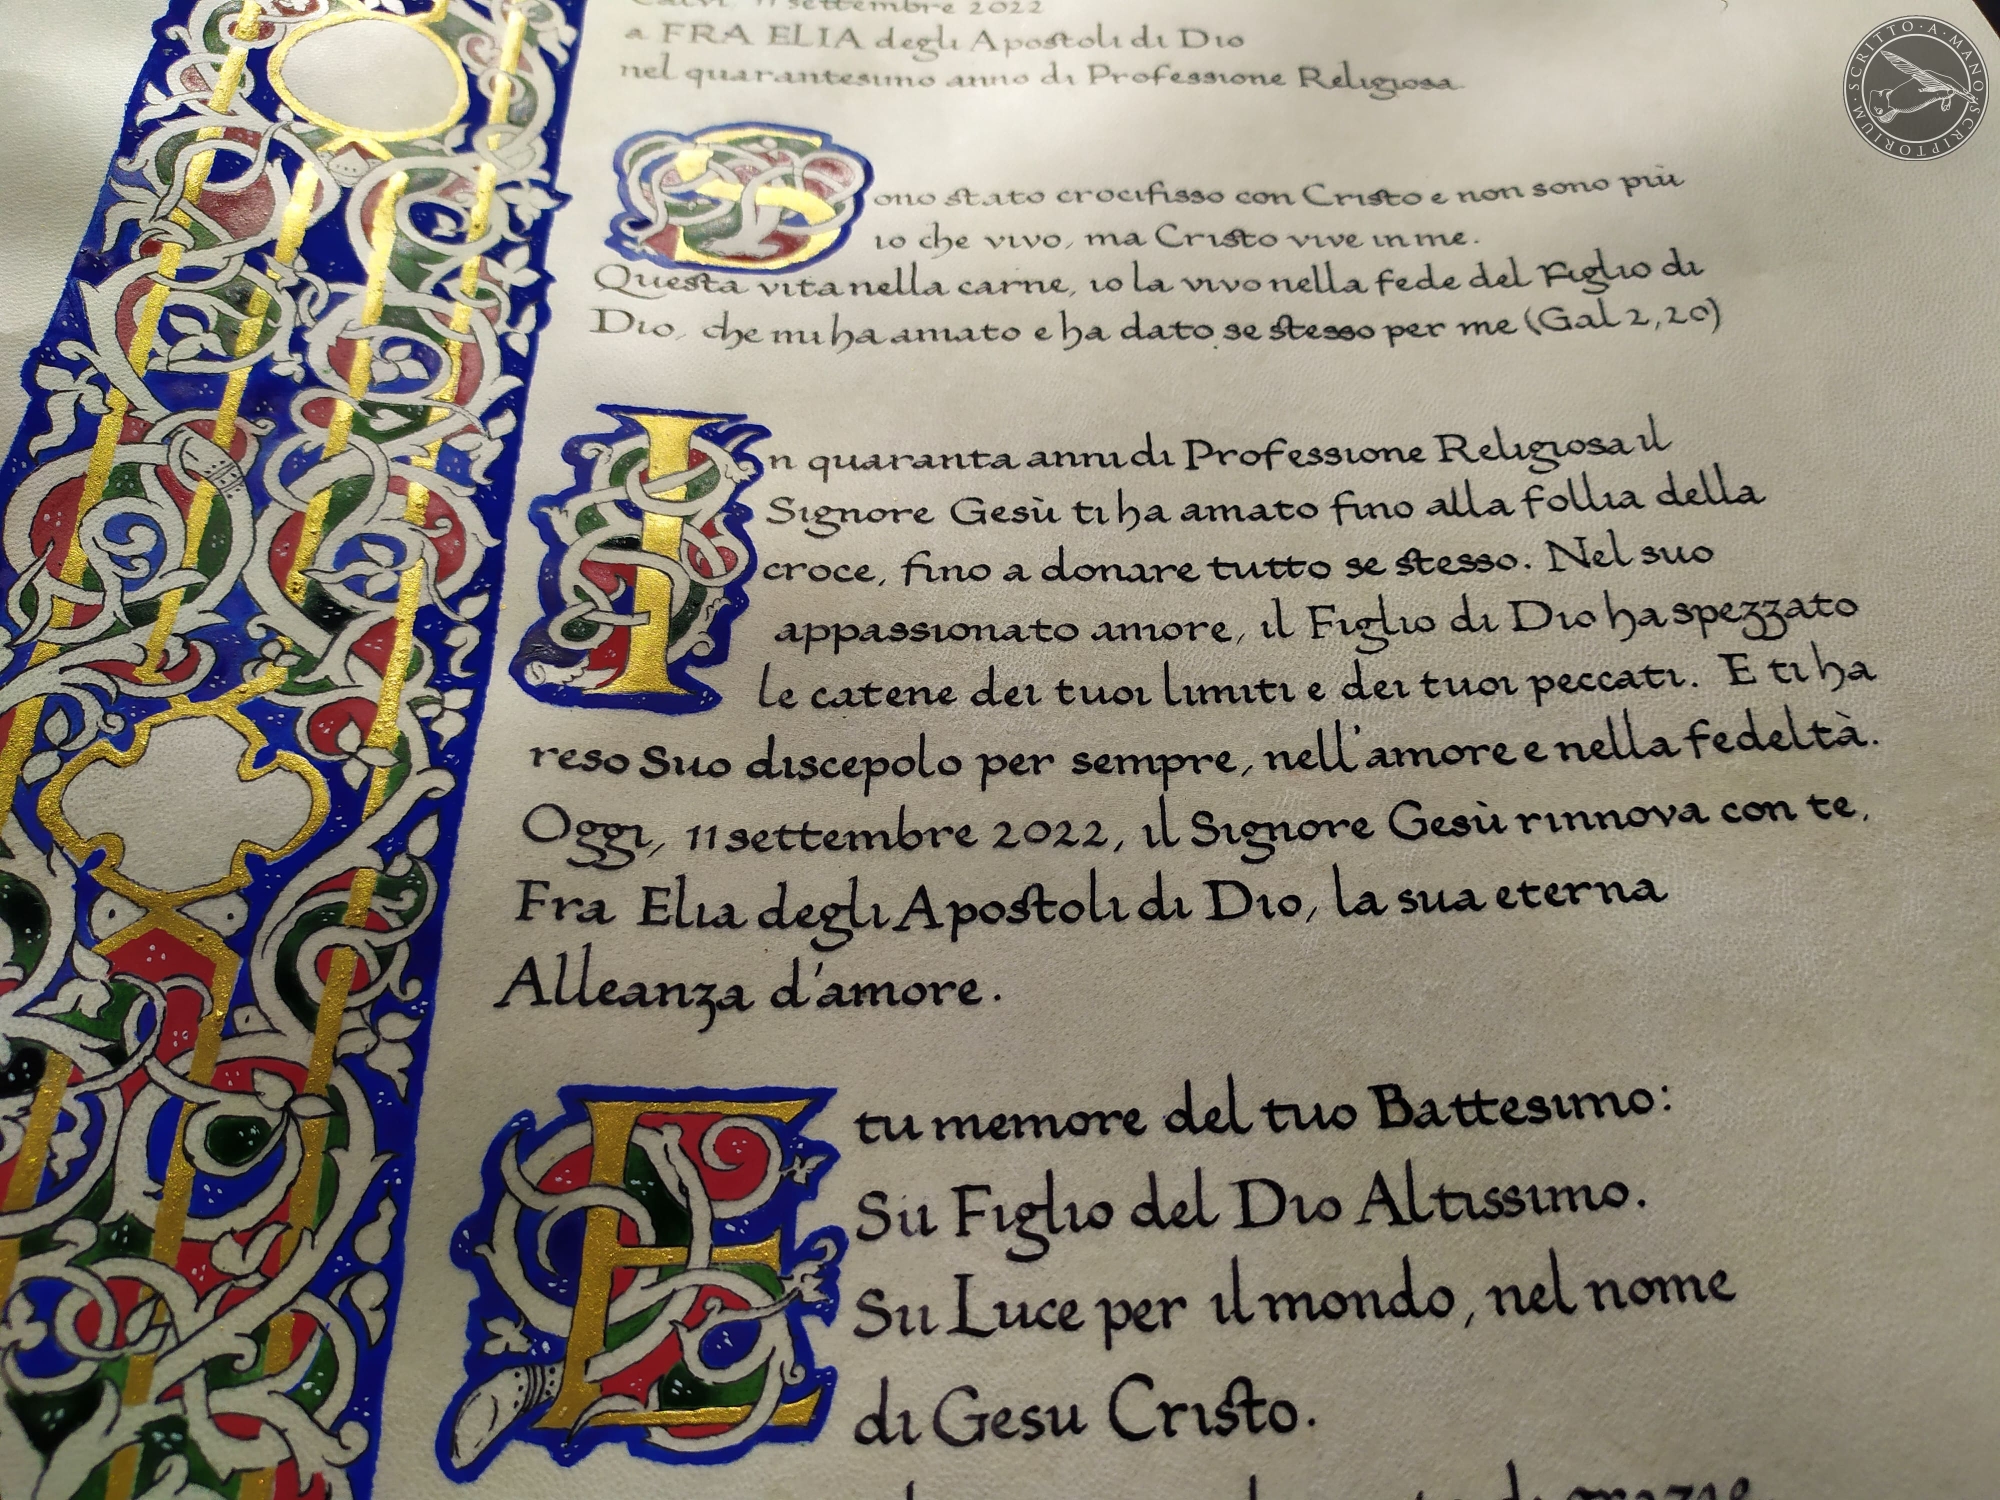 Calvi, 11 settembre 2022
a FRA ELIA degli Apostoli di Dio
nel quarantesimo anno di Professione Religiosa
Sono stato crocifisso con Cristo e non sono più
io che vivo, ma Cristo vive in me.
Questa vita nella carne, io la vivo nella fede del Figlio di
Dio, che mi ha amato e ha dato se stesso per me (Gal 2,20)
In quaranta anni di Professione Religiosa il
Signore Gesù ti ha amato fino alla follia della
croce, fino a donare tutto se stesso. Nel suo
appassionato amore, il Figlio di Dio ha spezzato
le catene dei tuoi limiti e dei tuoi peccati. E ti ha
reso Suo discepolo per sempre, nell'amore e nella fedeltà.
Oggi, 11 settembre 2022, il Signore Gesù rinnova con te,
Fra Elia degli Apostoli di Dio, la sua eterna
Alleanza d'amore.
E tu memore del tuo Battesimo:
Sii Figlio del Dio Altissimo.
Sii Luce per il mondo, nel nome
di Gesu Cristo.
di grazie
SCRITTO·A·MANO·SCRIPTORIUM·